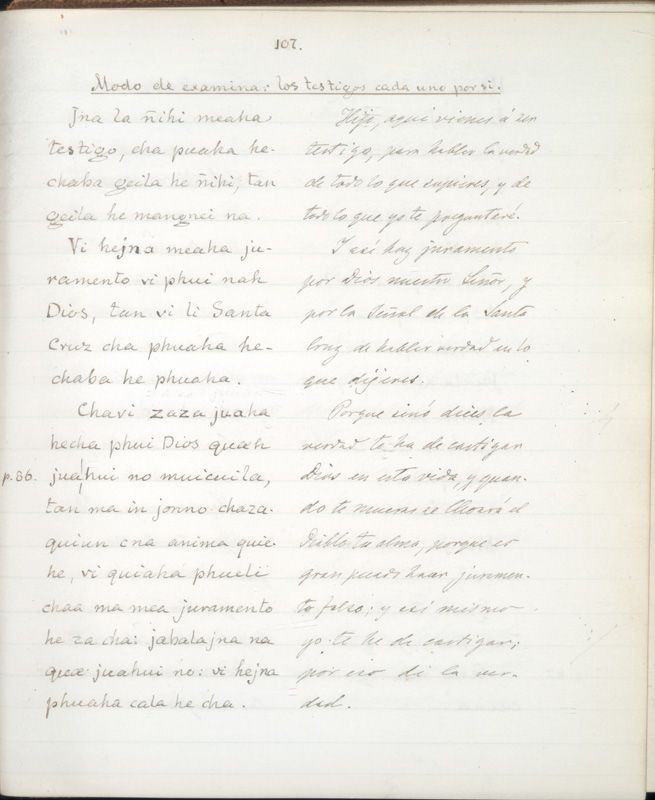 107.
Modo de examina: los testigos cada uno por si.
Jna la ñihi meaha
testigo, cha puaha he-
chaba geila he ñihi, tan
geila he mangnei na.
Vi hejna meaha ju-
ramento vi phui nah
Dios, tan vi li Santa
Cruz cha phuaha he-
chaba he phuaha.
Chavi zaza juaha
hecha phui Dios quaeh
p. 86. juahui no muicuila,
tan ma in jonno chaza-
quiun cna anima quie-
he, vi quiaha phueli
chaa ma mea juramento
he za cha: jabalajna na
quæ juahui no: vi hejna
phuaha cala he cha.
Hijo, aquí vienes á ser
testigo, para hablar la verdad
de todo lo que supieres, y de
todo lo que yo te preguntaré.
I así haz juramento
por Dios nuestro Señor, y
por la Señal de la Santa
Cruz de hablar verdad en lo
que dijeres.
Porque sinó dices la
verdad te ha de castigar
Dios en esta vida, y quan-
do te mueras se lleoará el
Diablo tu alma, porque es
gran pecado hacer juramen-
to falso; y así mismo
yo te he de castigar;
por eso di la ver-
dad.